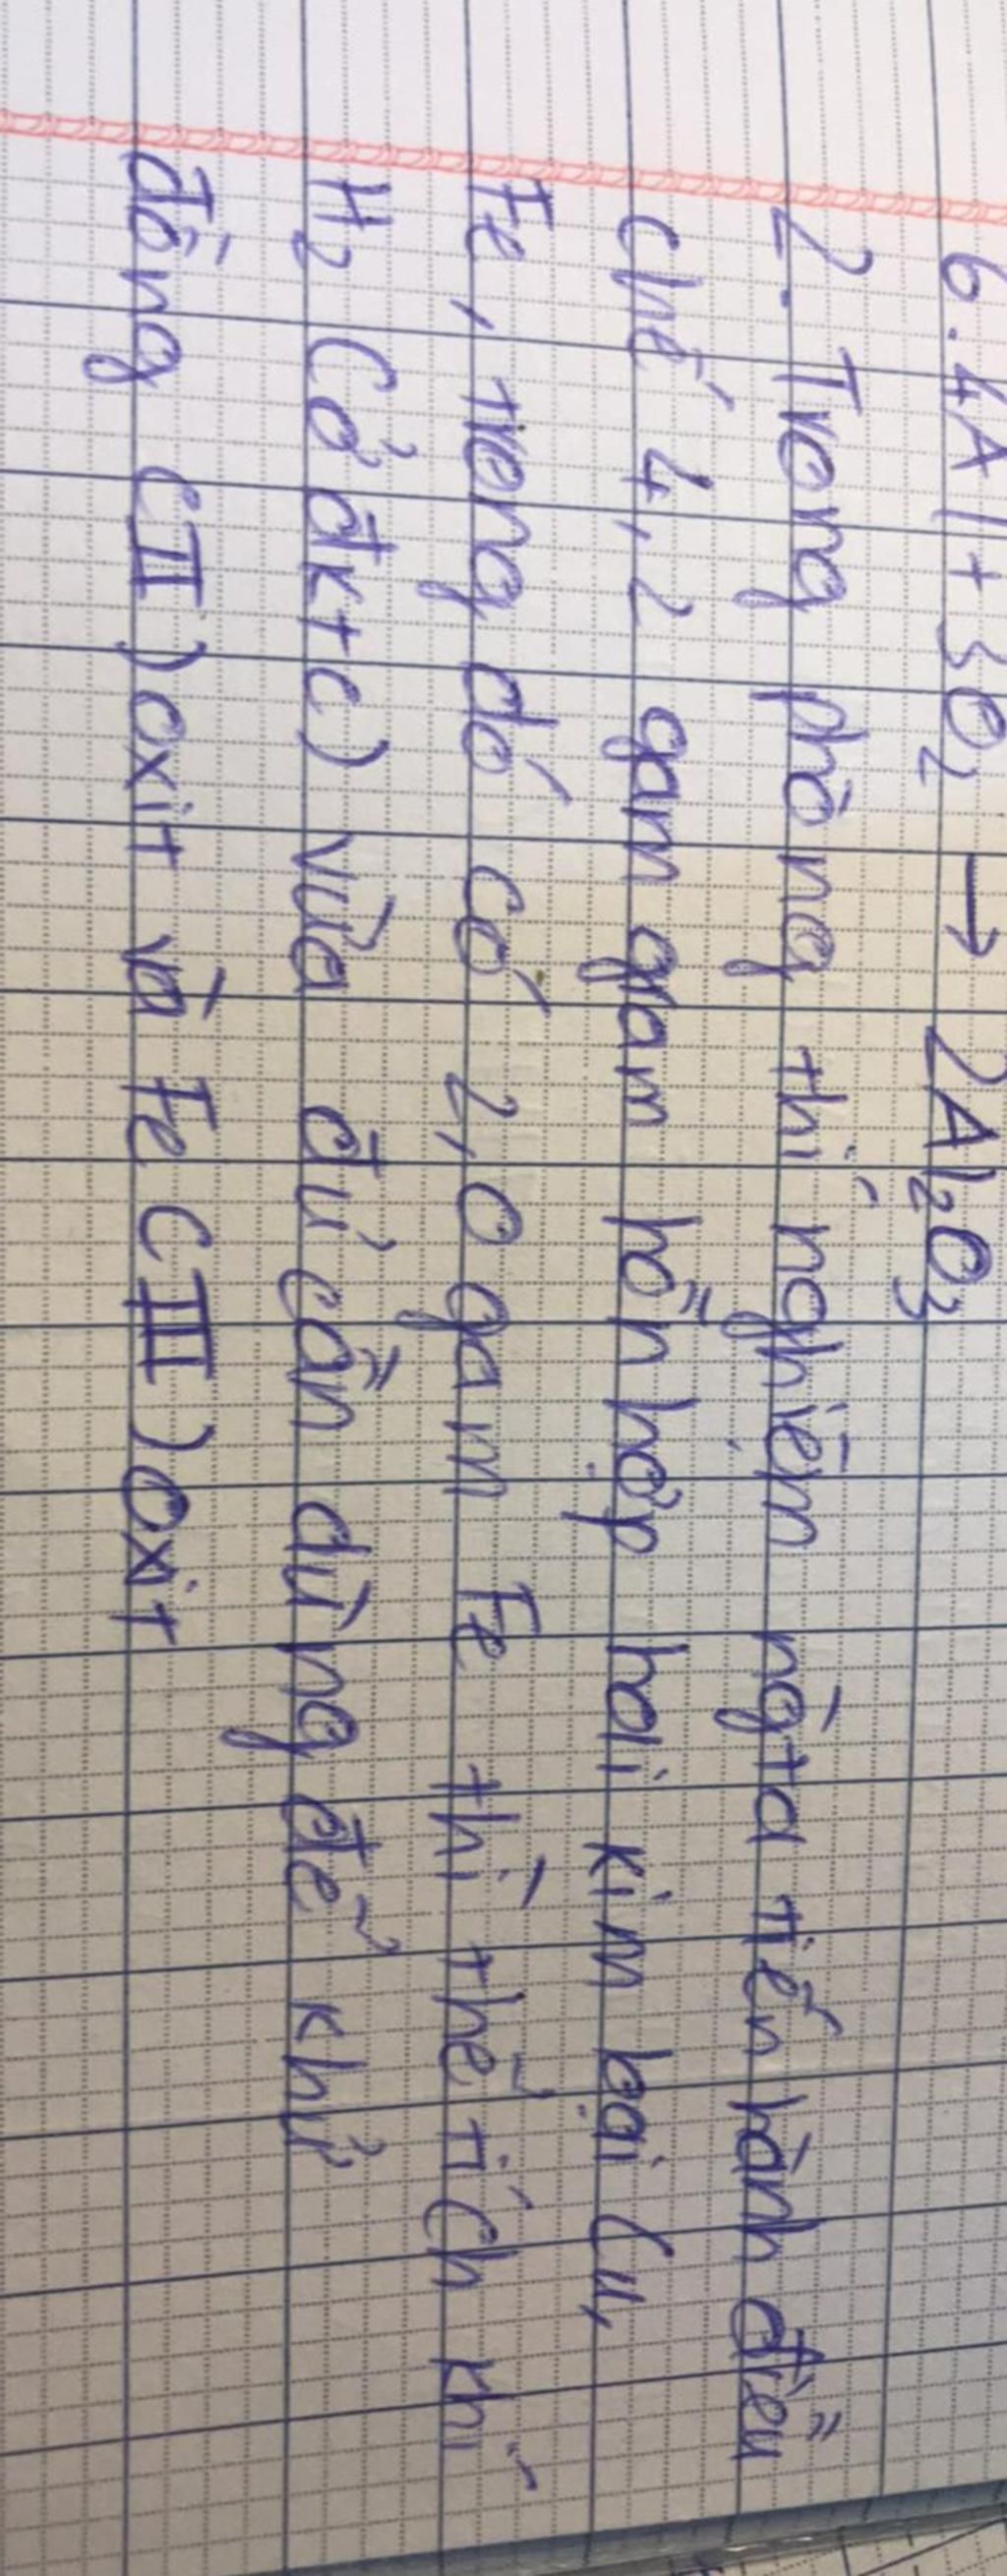 6. 4Al + 3O₂ → 2Al₂O₃
2. Trong phòng thí nghiệm người ta tiến hành điều
chế 4,2 gam gam hỗn hợp hai kim loại Cu,
Fe, trong đó có 2,0 gam Fe thì thể tích khí
H₂ (ở đktc) vừa đủ cần dùng để khử
đồng (II) oxit và Fe (III) oxit